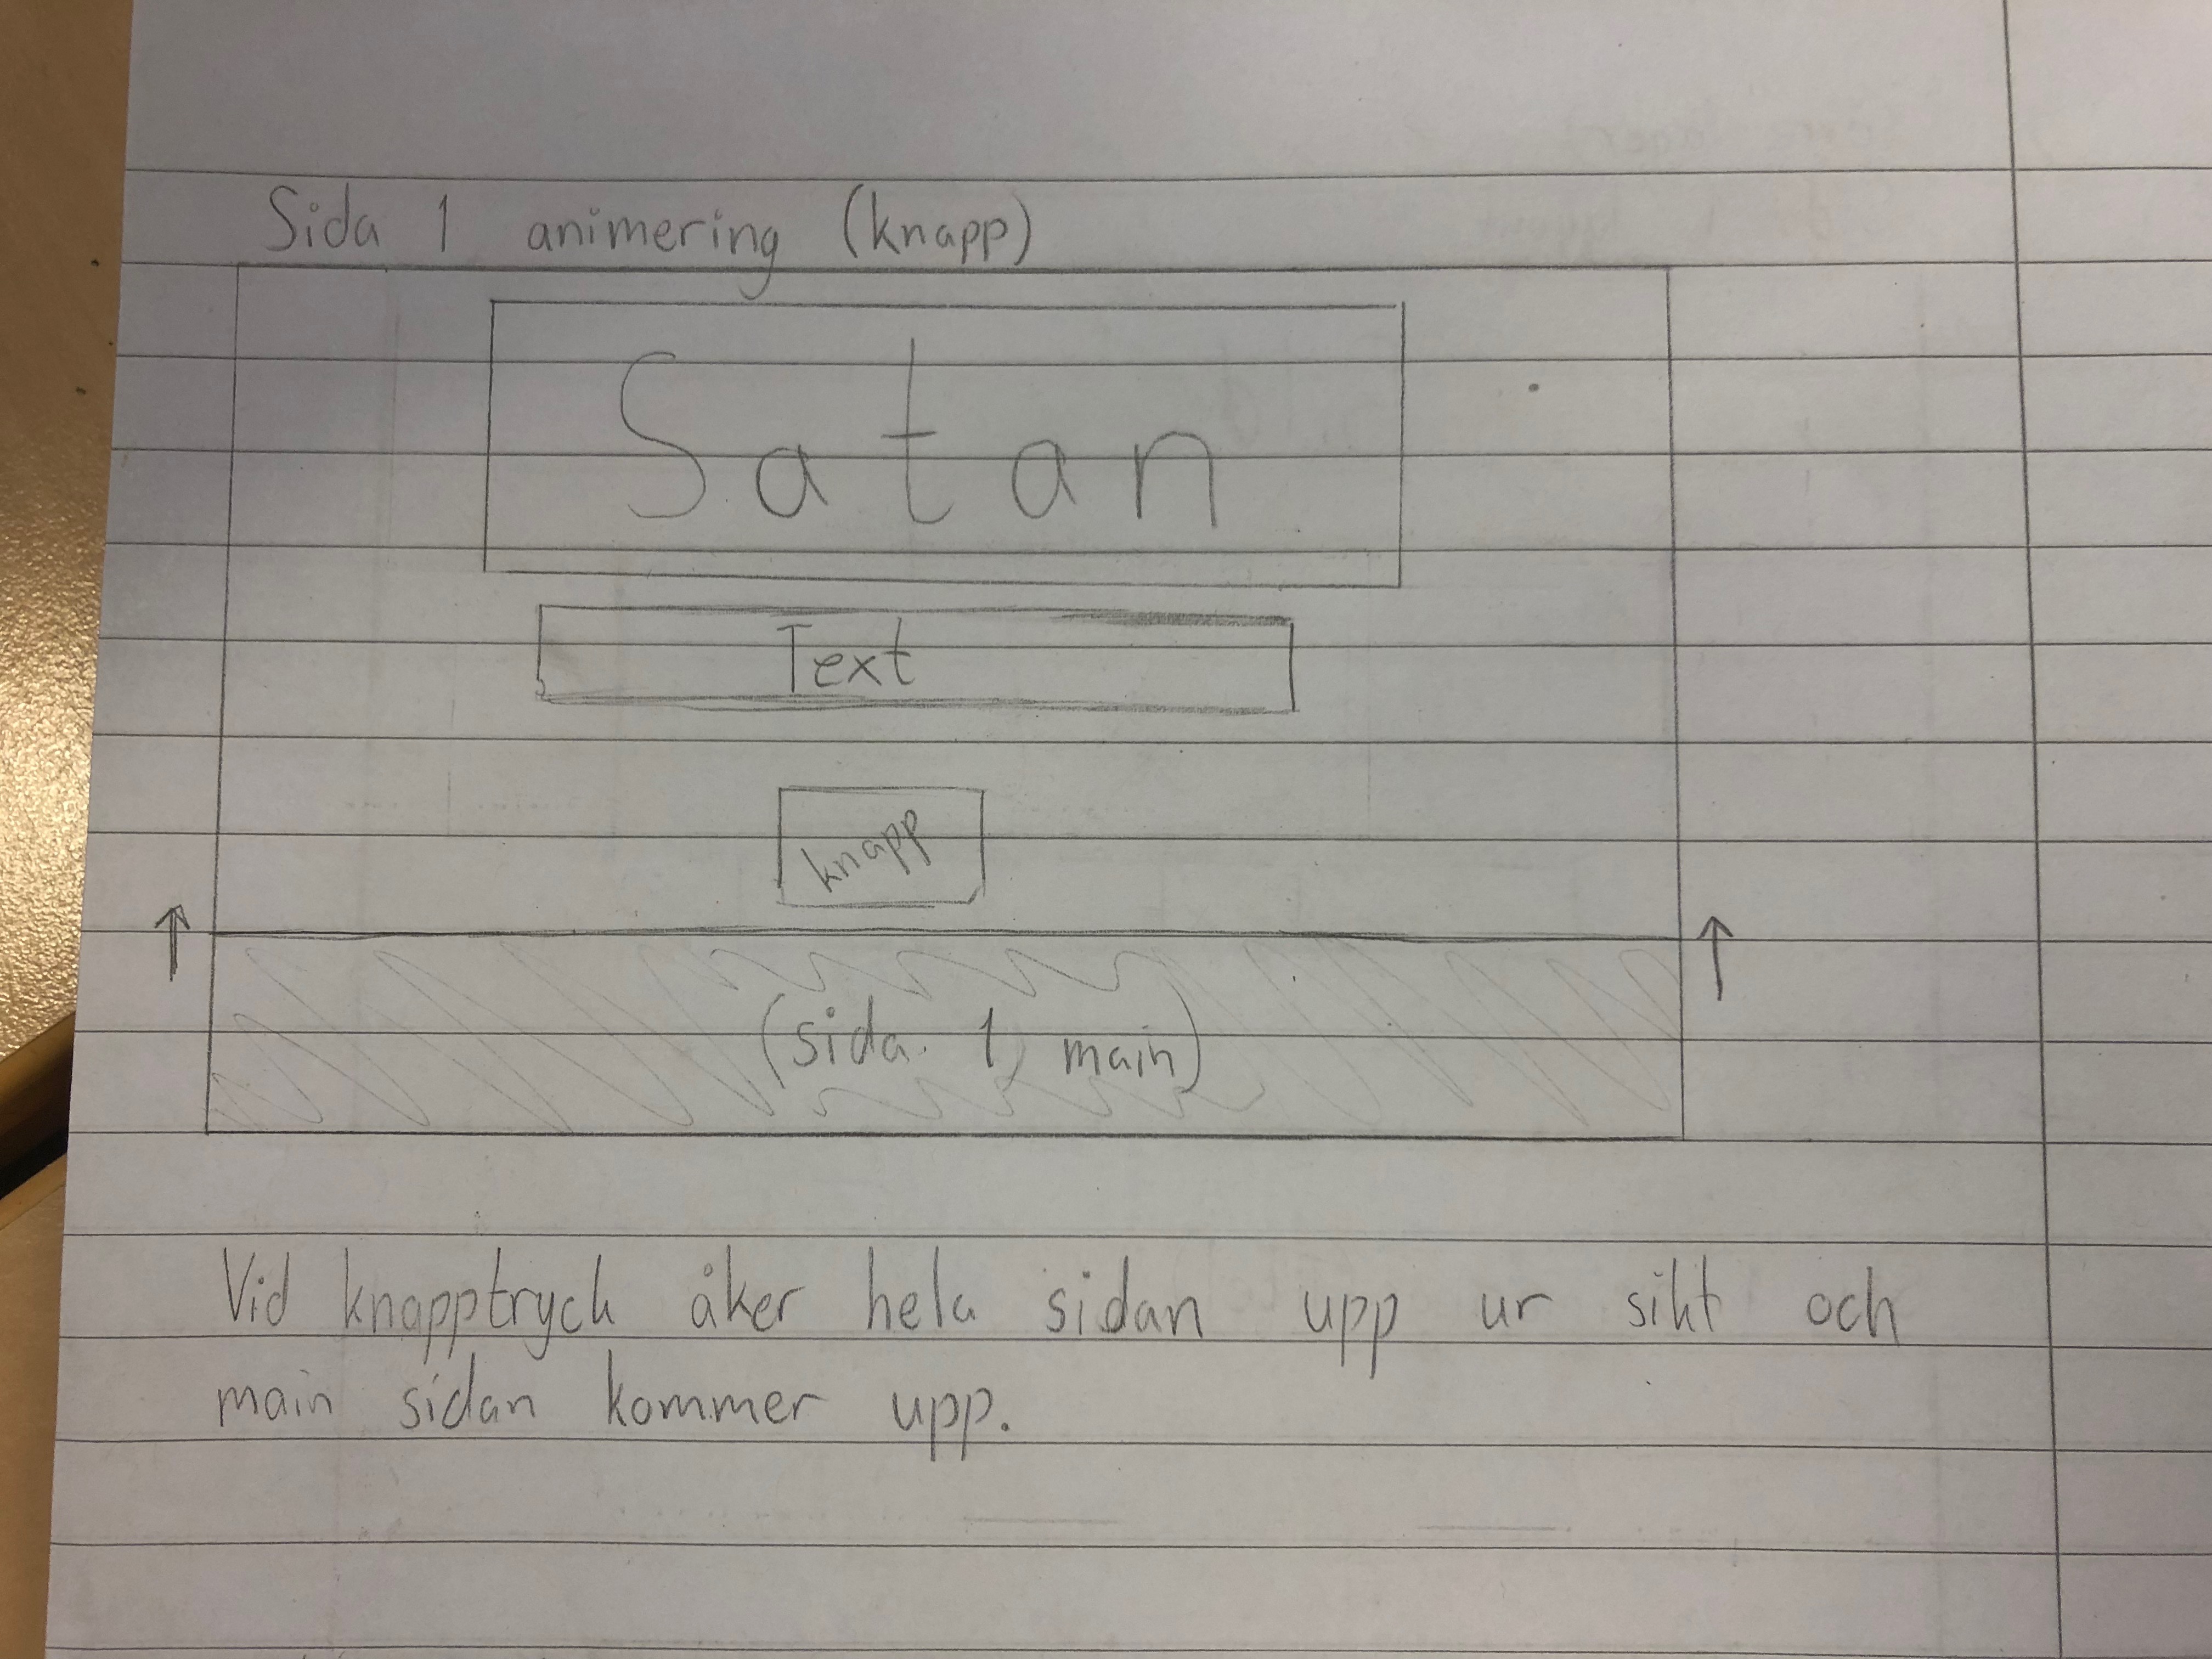 Sida 1 animering (knapp)
Satan
Text
knapp
(sida 1 main)
Vid knapptryck åker hela sidan upp ur sikt och
main sidan kommer upp.